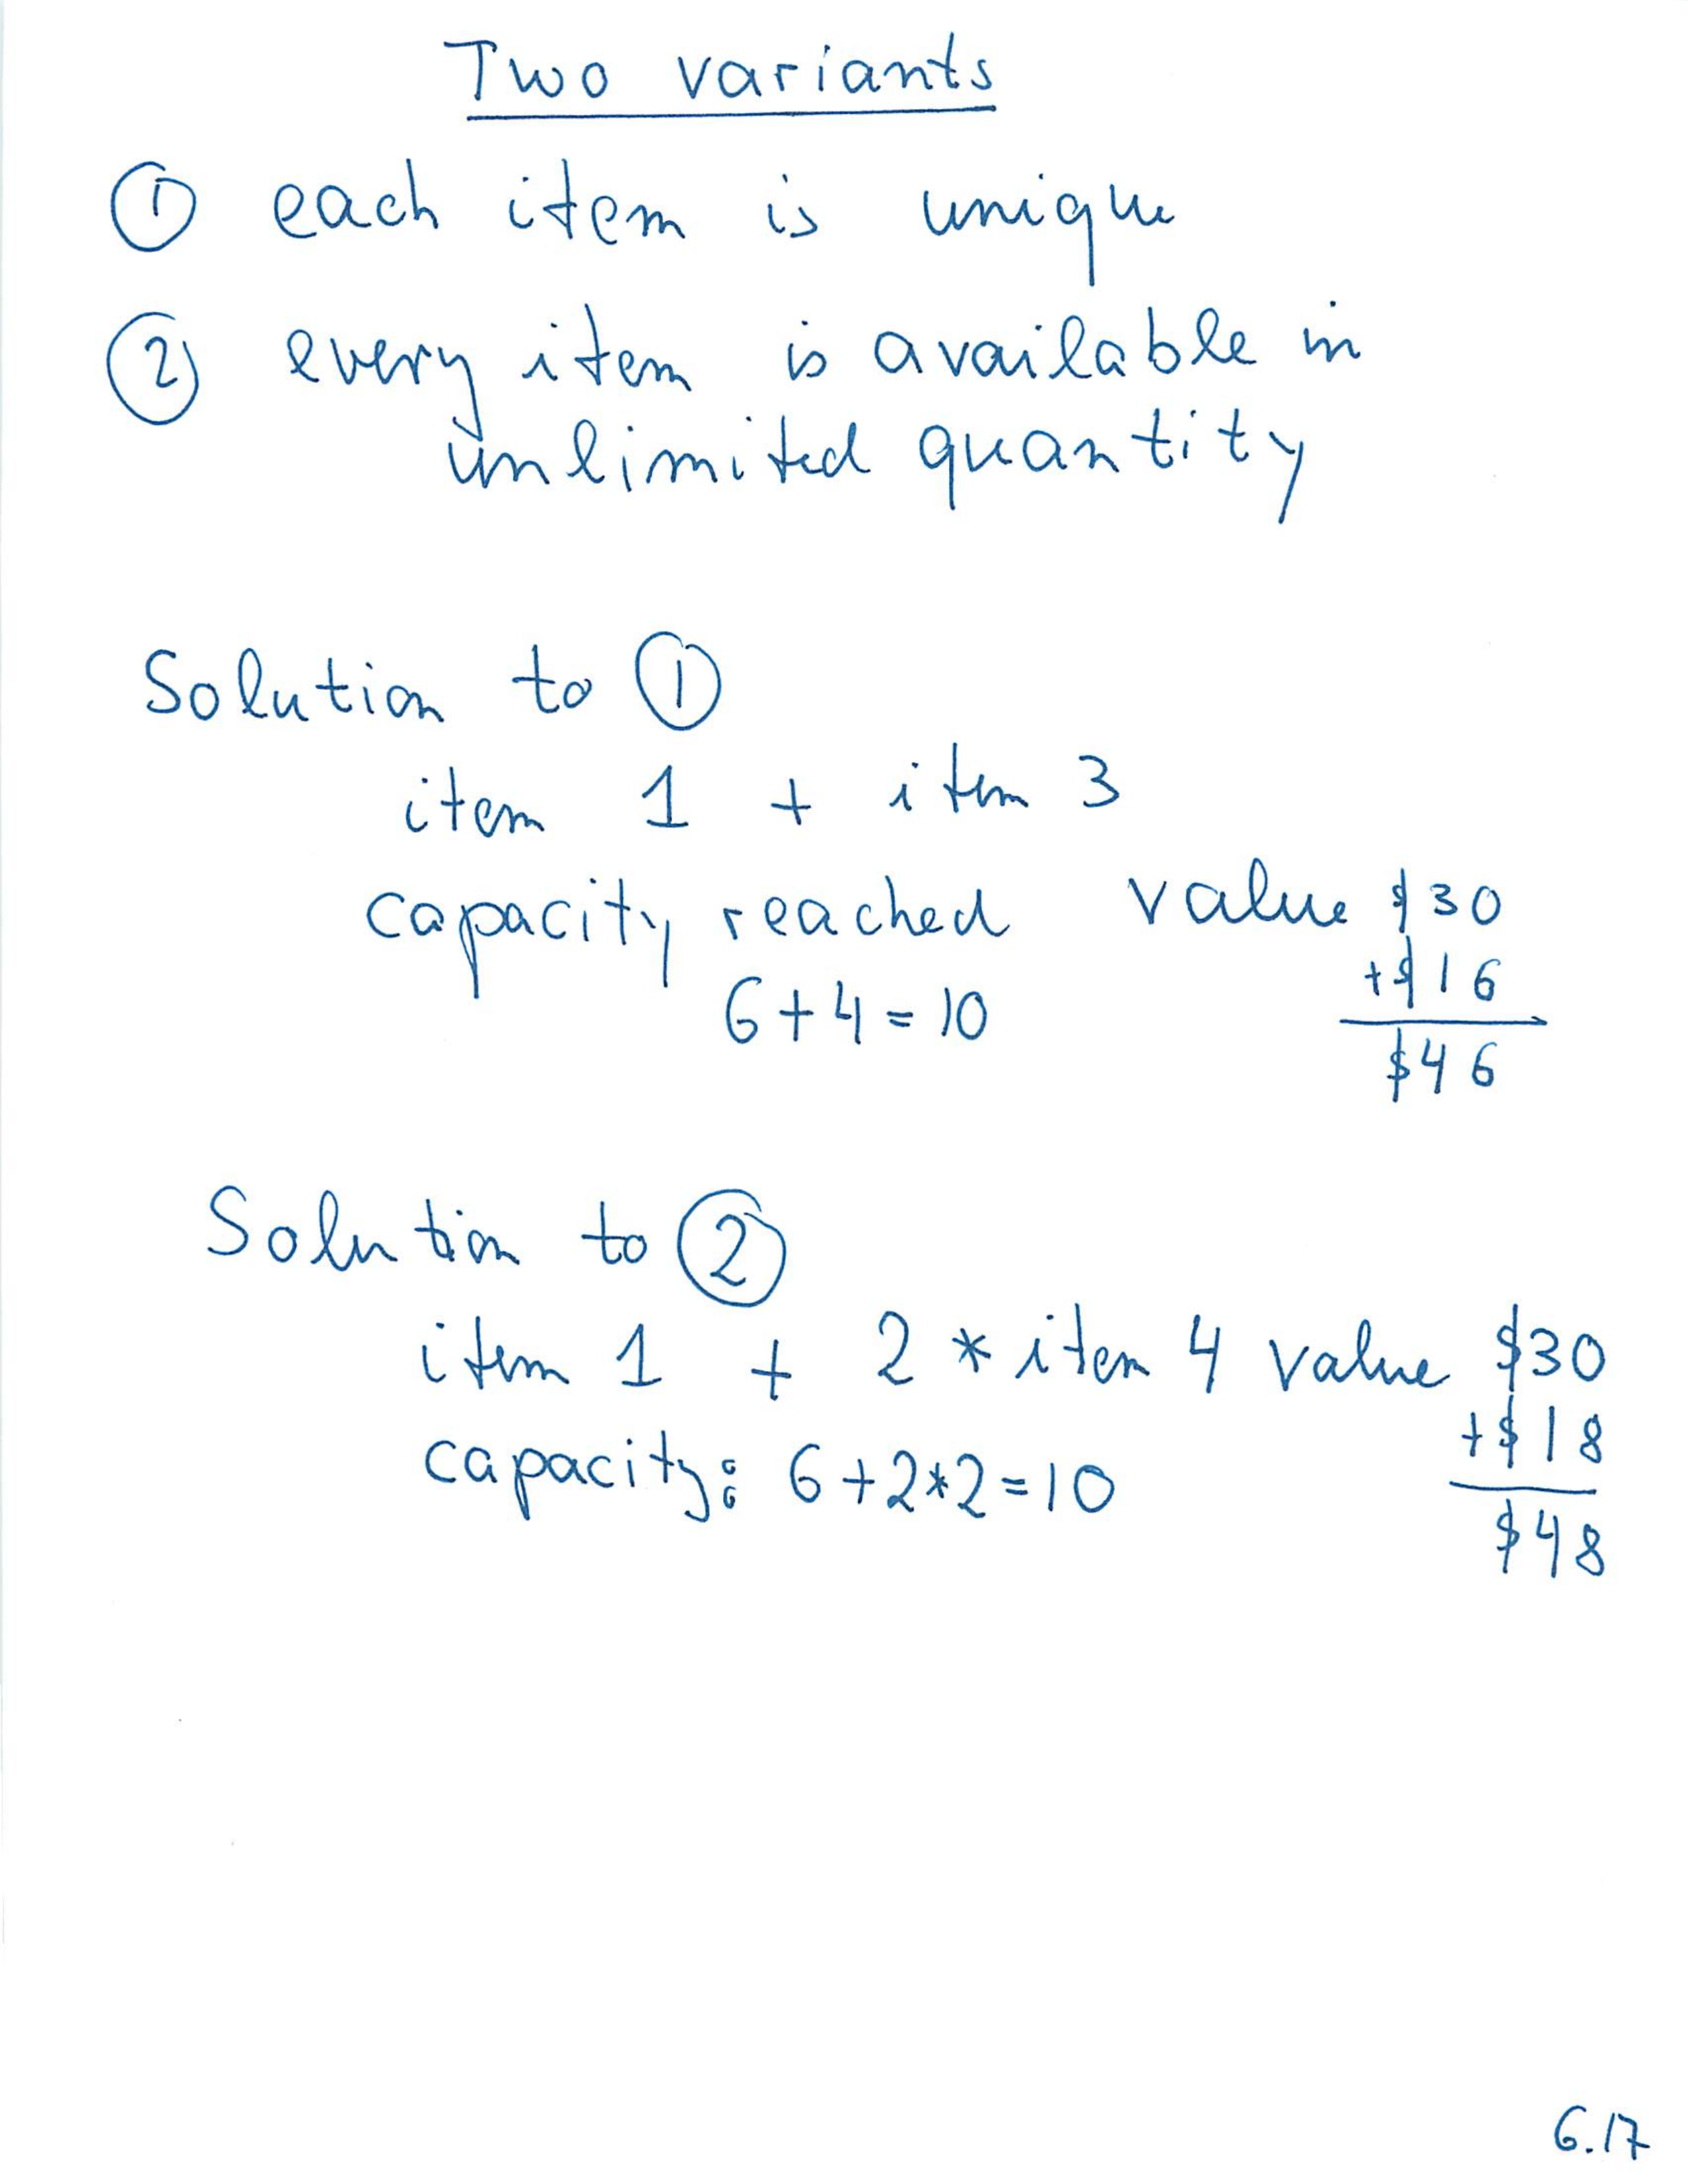 Two variants
① each item is unique
② every item is available in
unlimited quantity
Solution to ①
item 1 + item 3
capacity reached value $30
+$16
6+4=10
$46
Solution to ②
item 1 + 2 * item 4 value $30
+$18
capacity: 6+2*2=10
$48
6.17